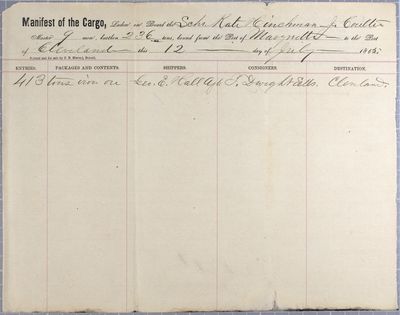 Manifest of the Cargo, Laden on Board the Schr Kate Hinchman J. Coulter
Master 9 men, burthen 226 tons, bound from the Port of Marquette to the Port
of Cleveland this 12 day of July
ENTRIES. PACKAGES AND CONTENTS. SHIPPERS. CONSIGNEES. DESTINATION.
413 tons iron ore Geo. E. Hall Agt Dwight Ells. Cleveland.